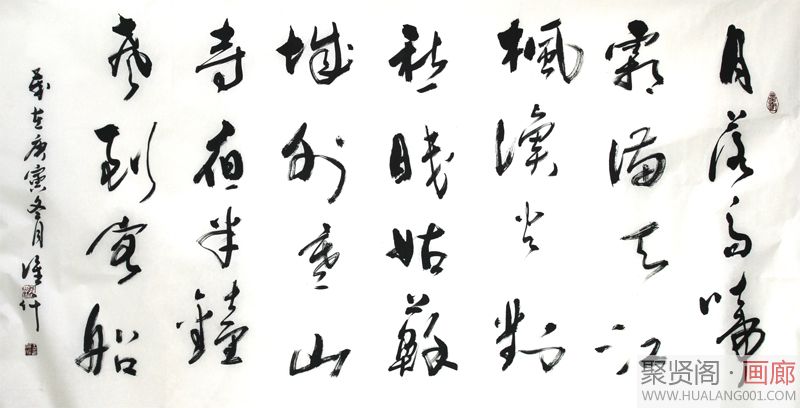 月落烏啼
霜滿天江
楓漁火對
愁眠姑蘇
城外寒山
寺夜半鐘
聲到客船
歲在庚寅冬月
聚贤阁·画廊
WWW.HUALANG001.COM